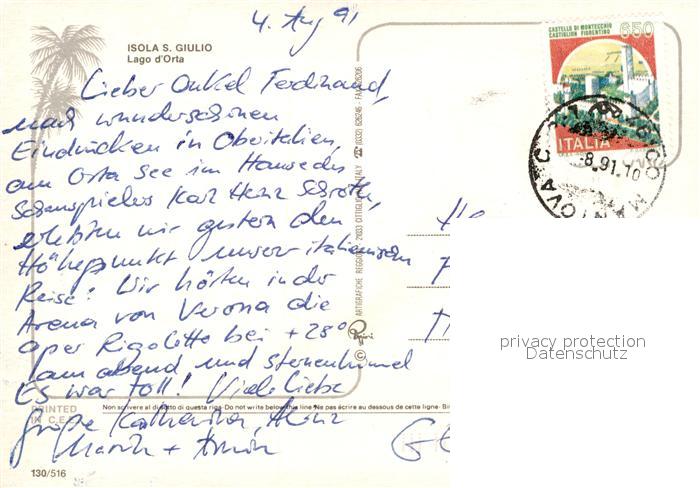 4. Aug 91
ISOLA S. GIULIO
Lago d'Orta
Lieber Onkel Ferdinand,
nach wunderschönen
Eindrücken in Oberitalien,
am Orta See im Hause des
Schauspielers Karl Heinz Schroth,
erlebten wir gestern den
Höhepunkt unserer italienischen
Reise! Wir hörten in der
Arena von Verona die
Oper Rigoletto bei +28°
am abend und Sternenhimmel
Es war toll! Viele Liebe
Grüße Katharina, Heinz
+
PRINTED
IN C.E.E.
130/516
Non scrivere al di sotto di questa riga - Do not write below this line - Ne pas écrire au dessous de cette ligne -
ARTIGRAFICHE REGGIORI - 21033 CITTIGLIO - ITALY ☎ (0332) 626245 - FAX
©
CASTELLO DI MONTECCHIO
CASTIGLION FIORENTINO
650
ITALIA
8.91.10
privacy protection
Datenschutz